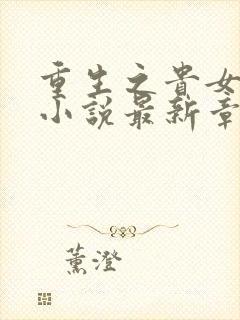 重生之貴女
小說最新章
薰澄